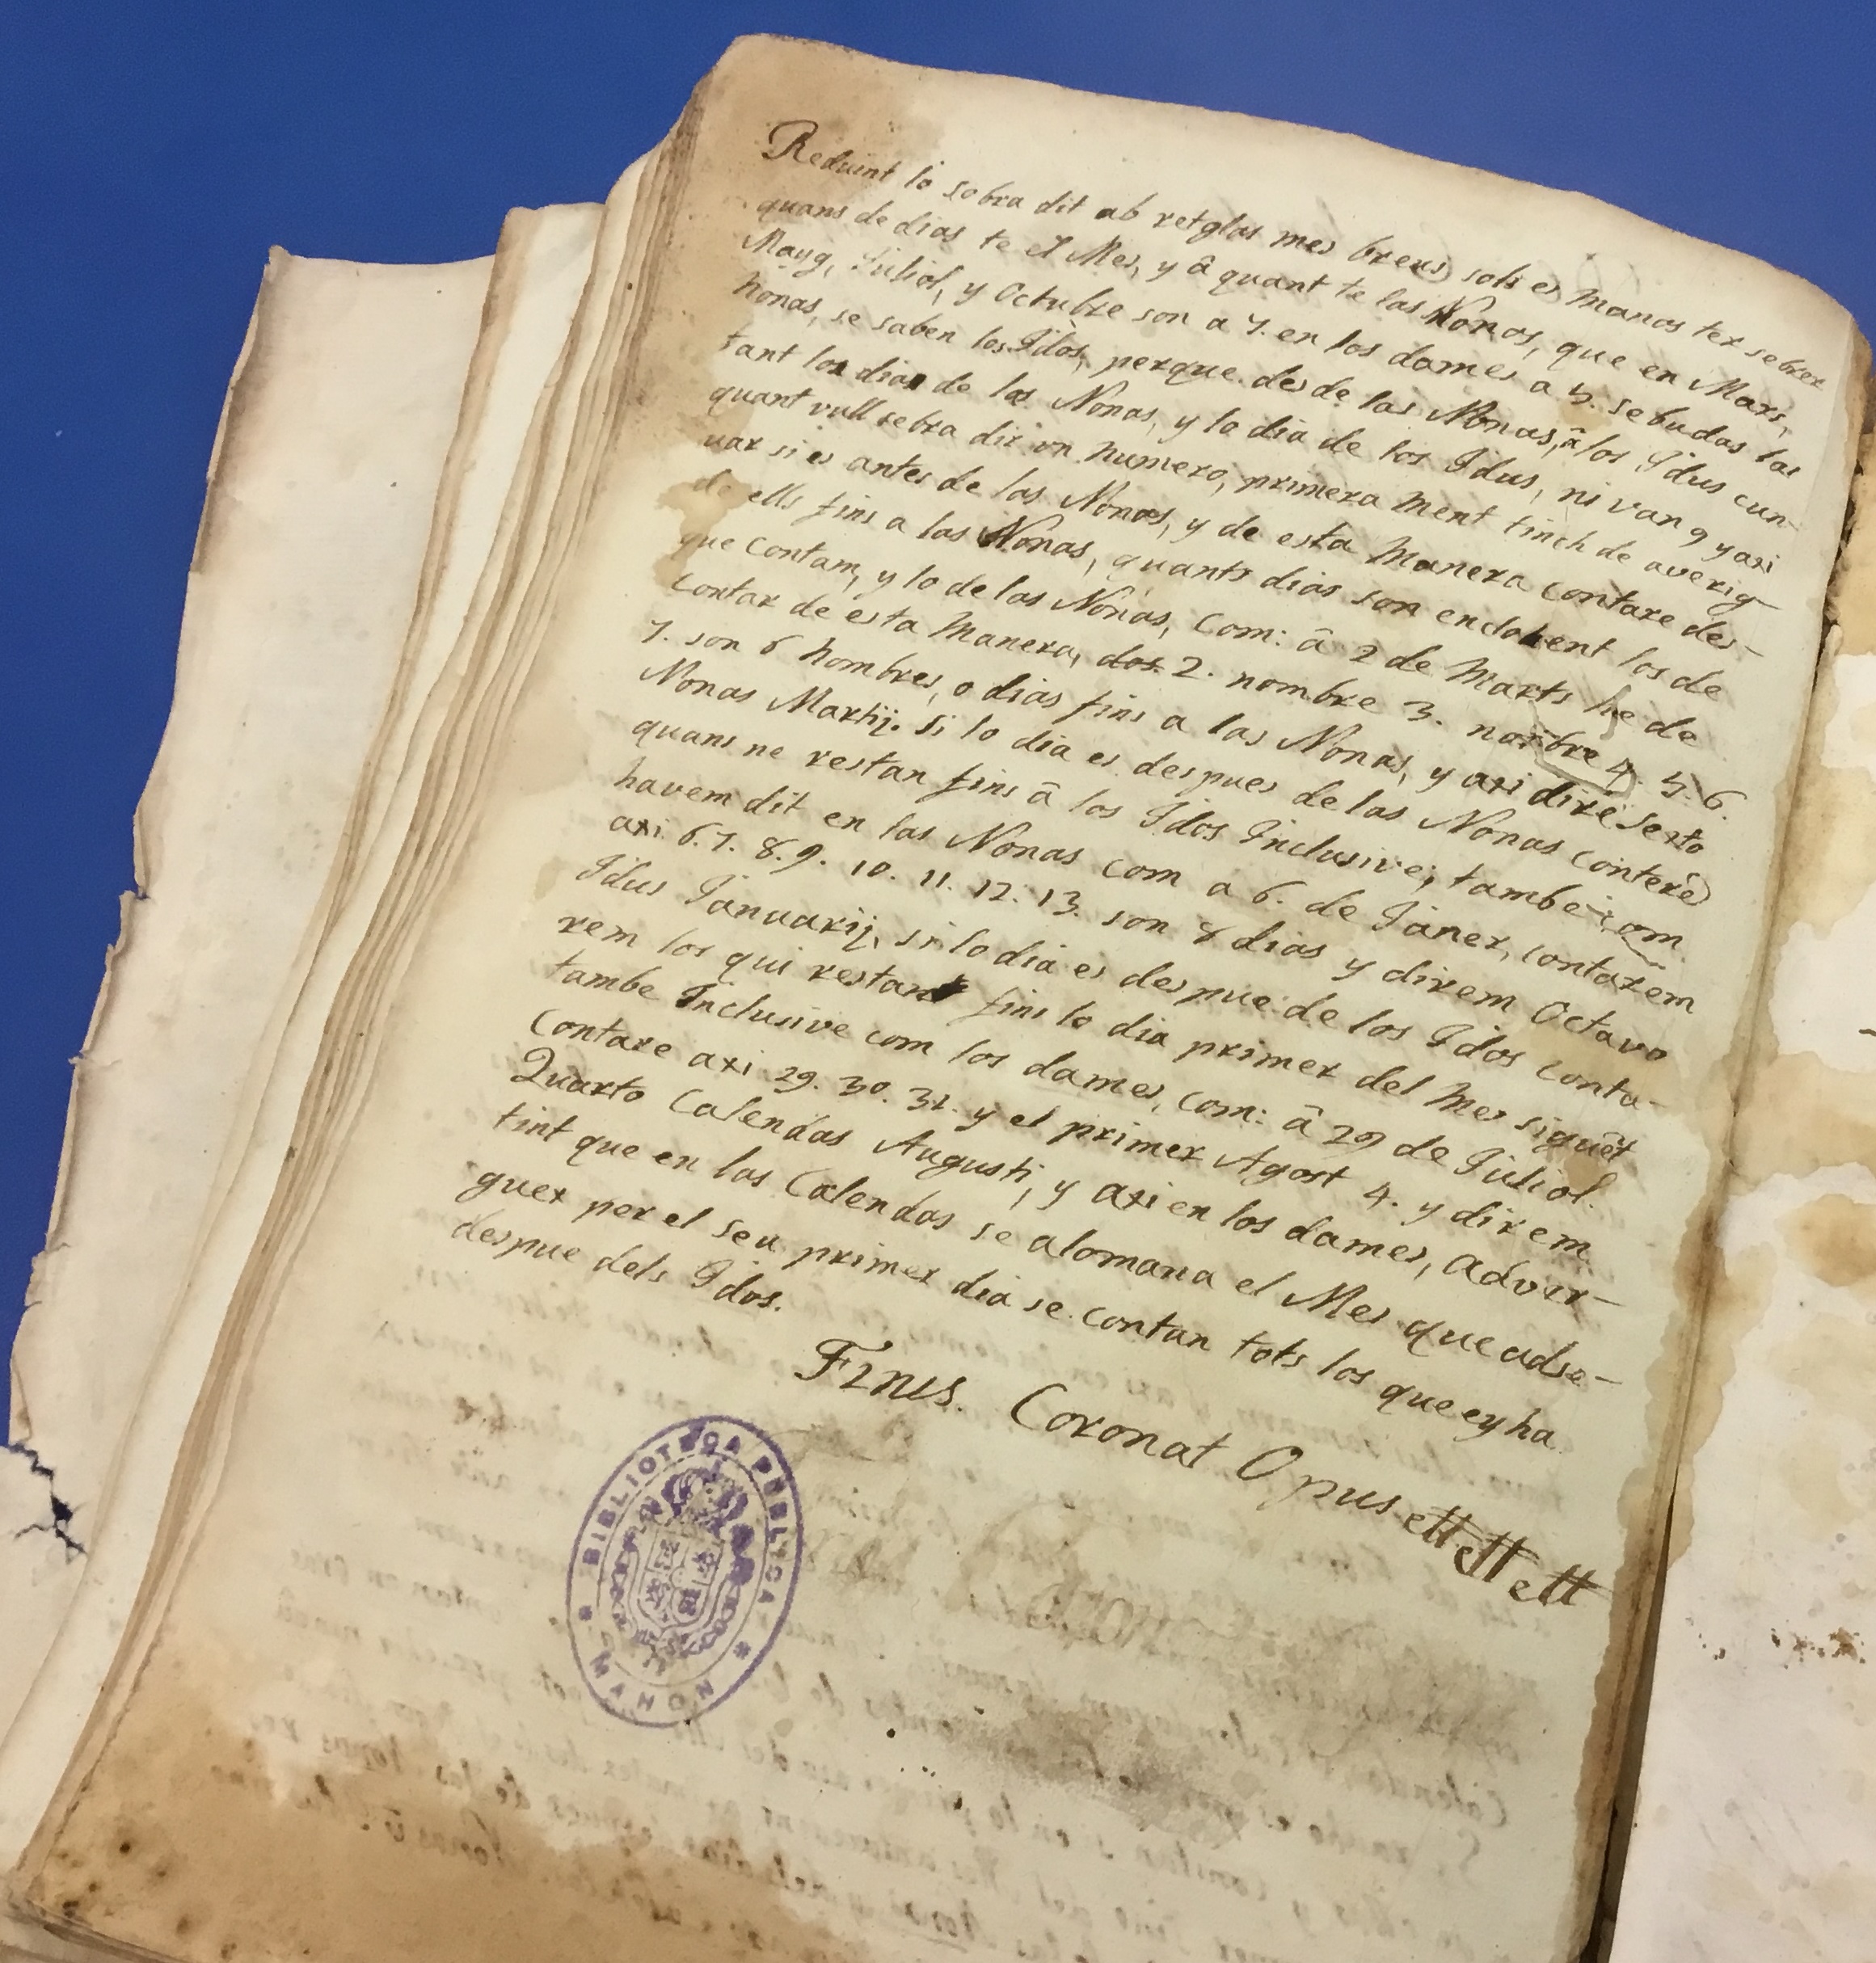 Reduint lo sobra dit ab retglas mes breus sols es manas ter sebrer
quans de dias te el Mes, y â quant te las Nonas, que en Mars,
Mayg, Juliol, y Octubre son a 7. en los dames a 5. sebudas las
Nonas, se saben los Idos, perque desde las Nonas, â los Idus cun-
tant los dias de las Nonas, y lo dia de los Idus, ni van 9 y axi
quant vull sebra dir un numero, primera ment tinch de averig-
uar si es antes de las Nonas, y de esta Manera contare des-
de ells fins a las Nonas, quants dias son encloent los de
que contam, y lo de las Nonas, Com: â 2 de Marts he de
Contar de esta Manera, dos 2. nombre 3. nombre 4. 5. 6.
7. son 6 hombres, o dias fins a las Nonas, y axi dire sexto
Nonas Martij. Si lo dia es despues de las Nonas conteré
quans ne restan fins â los Idos Inclusive, tambe com
havem dit en las Nonas com a 6. de Janer, contarem
axi 6. 7. 8. 9. 10. 11. 12. 13. son 8 dias y direm Octavo
Idus Januarij, si lo dia es despue de los Idos conta-
rem los qui restant fins lo dia primer del Mes siguêt
tambe Inclusive com los dames, com: â 29 de Juliol.
Contare axi 29. 30. 31. y el primer Agost 4. y direm
Quarto Calendas Augusti, y axi en los dames, Adver-
tint que en las Calendas se alomana el Mes que adse-
guex per el seu primer dia se contan tots los que ey ha
despue dels Idos.
Finis. Coronat Opus ett ett ett
BIBLIOTECA PÚBLICA
* MAHON *